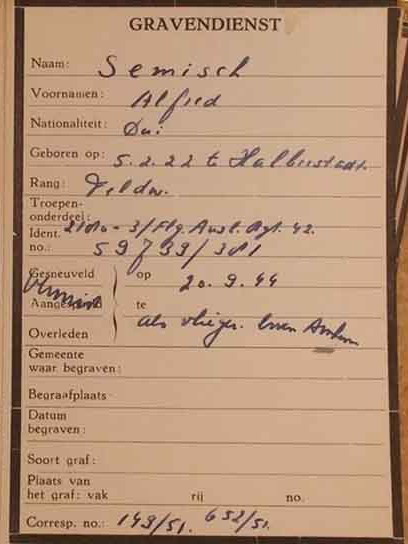 GRAVENDIENST
Naam: Semisch
Voornamen: Alfred
Nationaliteit: Dui
Geboren op: 5.2.22 te Halberstadt.
Rang: Feldw.
Troepen-
onderdeel: 3/Flg. Ausb. Rgt. 42.
Ident.
no.: 59739/381
Gesneuveld op 20.9.44
Vermist
te
Overleden als vlieger. boven Arnhem
Gemeente
waar begraven:
Begraafplaats
Datum
begraven:
Soort graf:
Plaats van
het graf: vak rij no.
Corresp. no.: 149/51. 652/51.